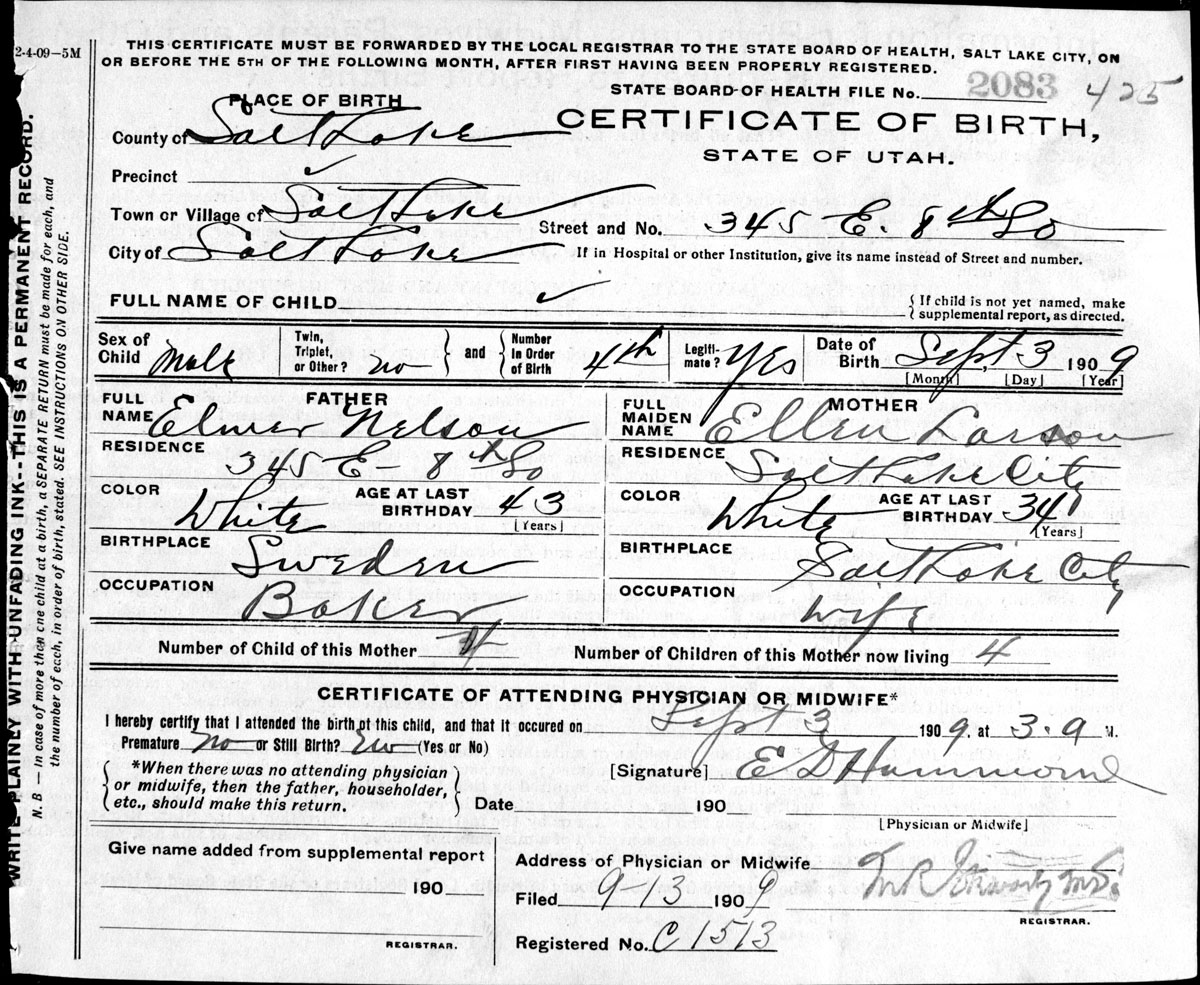 2-4-09—5M
THIS CERTIFICATE MUST BE FORWARDED BY THE LOCAL REGISTRAR TO THE STATE BOARD OF HEALTH, SALT LAKE CITY, ON
OR BEFORE THE 5TH OF THE FOLLOWING MONTH, AFTER FIRST HAVING BEEN PROPERLY REGISTERED.
STATE BOARD OF HEALTH FILE No. 2083 425
PLACE OF BIRTH
CERTIFICATE OF BIRTH,
STATE OF UTAH.
County of Salt Lake
Precinct ✓
Town or Village of Salt Lake
Street and No. 345 E. 8th So
City of Salt Lake
If in Hospital or other Institution, give its name instead of Street and number.
FULL NAME OF CHILD ✓
{ If child is not yet named, make
supplemental report, as directed.
Sex of Child Male
Twin, Triplet, or Other? no } and { Number in Order of Birth 4th
Legiti-mate? Yes
Date of Birth Sept. 3 1909
[Month] [Day] [Year]
FATHER
FULL NAME Elmer Nelson
RESIDENCE 345 E- 8th So
COLOR White
AGE AT LAST BIRTHDAY 43
[Years]
BIRTHPLACE Sweden
OCCUPATION Baker
MOTHER
FULL MAIDEN NAME Ellen Larson
RESIDENCE Salt Lake City
COLOR White
AGE AT LAST BIRTHDAY 34
[Years]
BIRTHPLACE Salt Lake City
OCCUPATION Wife
Number of Child of this Mother 4
Number of Children of this Mother now living 4
CERTIFICATE OF ATTENDING PHYSICIAN OR MIDWIFE*
I hereby certify that I attended the birth of this child, and that it occured on Sept 3 1909, at 3.9 M.
Premature No or Still Birth? (Yes or No)
{ *When there was no attending physician
or midwife, then the father, householder,
etc., should make this return. }
[Signature] E D Hammond
Date 190
[Physician or Midwife]
Give name added from supplemental report
190
REGISTRAR.
Address of Physician or Midwife
Filed 9 13 1909
REGISTRAR.
Registered No. C 1513
WRITE PLAINLY WITH UNFADING INK--THIS IS A PERMANENT RECORD.
N. B — In case of more then one child at a birth, a SEPARATE RETURN must be made for each, and
the number of each, in order of birth, stated. SEE INSTRUCTIONS ON OTHER SIDE.